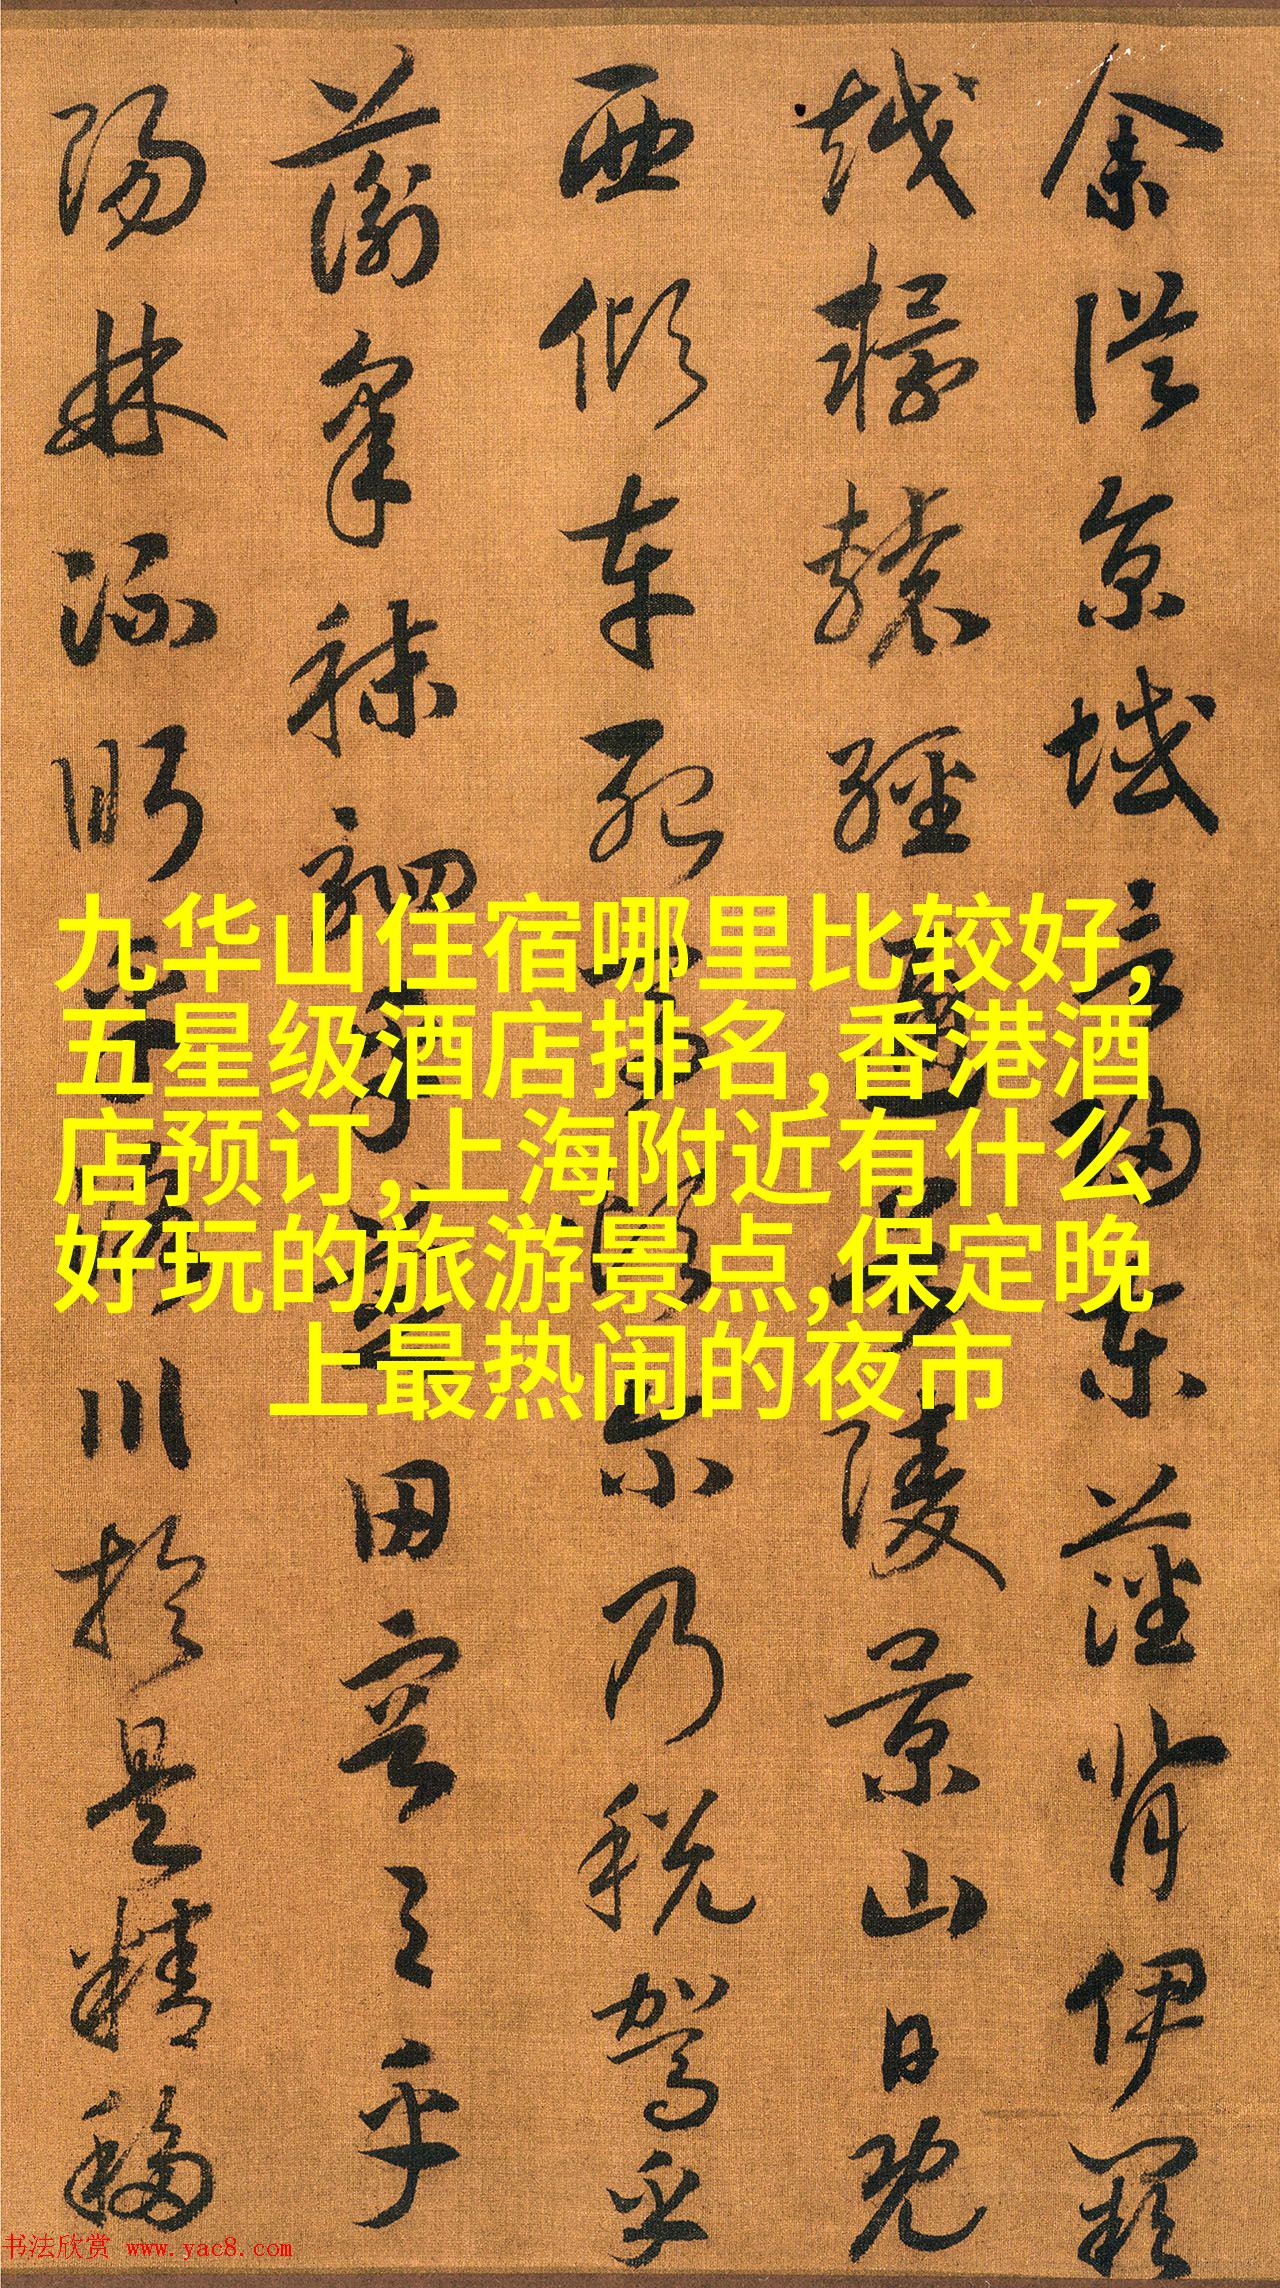 余從京域言歸東藩背伊闕
越轘轅經通谷陵景山日既
西傾車殆馬煩尔乃税駕乎
蘅皋秣駟乎芝田容与乎
陽林流眄乎洛川於是精移
九华山住宿哪里比较好,
五星级酒店排名,香港酒
店预订,上海附近有什么
好玩的旅游景点,保定晚
上最热闹的夜市
书法欣赏 www.yac8.com